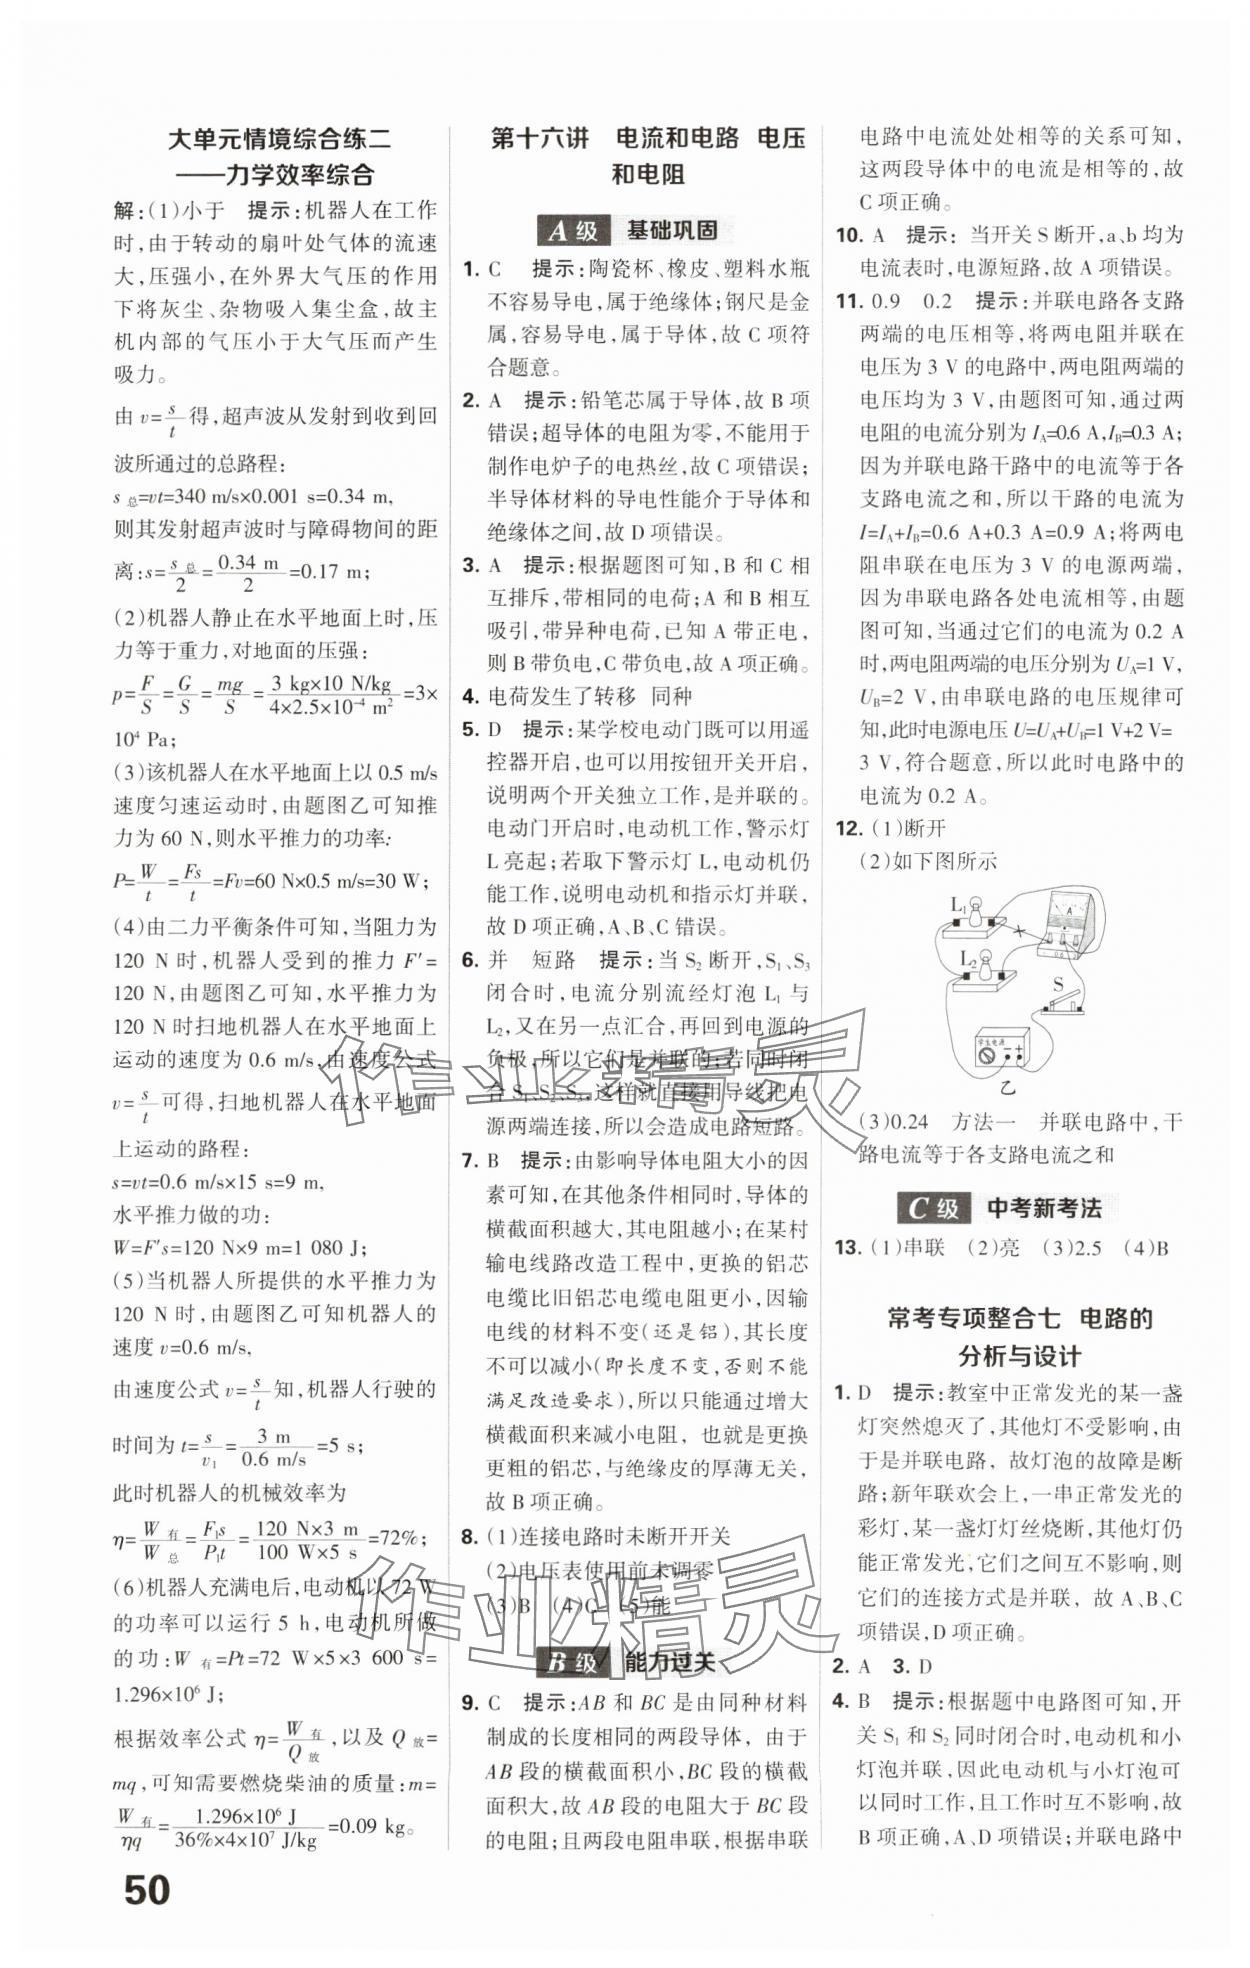 大单元情境综合练二
——力学效率综合
解:(1)小于　提示:机器人在工作
时,由于转动的扇叶处气体的流速
大,压强小,在外界大气压的作用
下将灰尘、杂物吸入集尘盒,故主
机内部的气压小于大气压而产生
吸力。
由 v=s/t 得,超声波从发射到收到回
波所通过的总路程:
s总=vt=340 m/s×0.001 s=0.34 m,
则其发射超声波时与障碍物间的距
离:s=s总/2=0.34 m/2=0.17 m;
(2)机器人静止在水平地面上时,压
力等于重力,对地面的压强:
p=F/S=G/S=mg/S=3 kg×10 N/kg/4×2.5×10⁻⁴ m²=3×
10⁴ Pa;
(3)该机器人在水平地面上以 0.5 m/s
速度匀速运动时,由题图乙可知推
力为 60 N,则水平推力的功率:
P=W/t=Fs/t=Fv=60 N×0.5 m/s=30 W;
(4)由二力平衡条件可知,当阻力为
120 N 时,机器人受到的推力 F′=
120 N,由题图乙可知,水平推力为
120 N 时扫地机器人在水平地面上
运动的速度为 0.6 m/s,由速度公式
v=s/t 可得,扫地机器人在水平地面
上运动的路程:
s=vt=0.6 m/s×15 s=9 m,
水平推力做的功:
W=F′s=120 N×9 m=1 080 J;
(5)当机器人所提供的水平推力为
120 N 时,由题图乙可知机器人的
速度 v=0.6 m/s,
由速度公式 v=s/t 知,机器人行驶的
时间为 t=s/v₁=3 m/0.6 m/s=5 s;
此时机器人的机械效率为
η=W有/W总=F₁s/P₁t=120 N×3 m/100 W×5 s=72%;
(6)机器人充满电后,电动机以 72 W
的功率可以运行 5 h,电动机所做
的功:W有=Pt=72 W×5×3 600 s=
1.296×10⁶ J;
根据效率公式 η=W有/Q放,以及 Q放=
mq,可知需要燃烧柴油的质量:m=
W有/ηq=1.296×10⁶ J/36%×4×10⁷ J/kg=0.09 kg。
50
第十六讲　电流和电路 电压
和电阻
A 级 基础巩固
1. C　提示:陶瓷杯、橡皮、塑料水瓶
不容易导电,属于绝缘体;钢尺是金
属,容易导电,属于导体,故 C 项符
合题意。
2. A　提示:铅笔芯属于导体,故 B 项
错误;超导体的电阻为零,不能用于
制作电炉子的电热丝,故 C 项错误;
半导体材料的导电性能介于导体和
绝缘体之间,故 D 项错误。
3. A　提示:根据题图可知,B 和 C 相
互排斥,带相同的电荷;A 和 B 相互
吸引,带异种电荷,已知 A 带正电,
则 B 带负电,C 带负电,故 A 项正确。
4. 电荷发生了转移　同种
5. D　提示:某学校电动门既可以用遥
控器开启,也可以用按钮开关开启,
说明两个开关独立工作,是并联的。
电动门开启时,电动机工作,警示灯
L 亮起;若取下警示灯 L,电动机仍
能工作,说明电动机和指示灯并联,
故 D 项正确,A、B、C 错误。
6. 并　短路　提示:当 S₂ 断开,S₁、S₃
闭合时,电流分别流经灯泡 L₁ 与
L₂,又在另一点汇合,再回到电源的
负极,所以它们是并联的;若同时闭
合 S₁、S₂、S₃,这样就直接用导线把电
源两端连接,所以会造成电路短路。
7. B　提示:由影响导体电阻大小的因
素可知,在其他条件相同时,导体的
横截面积越大,其电阻越小;在某村
输电线路改造工程中,更换的铝芯
电缆比旧铝芯电缆电阻更小,因输
电线的材料不变(还是铝),其长度
不可以减小(即长度不变,否则不能
满足改造要求),所以只能通过增大
横截面积来减小电阻，也就是更换
更粗的铝芯,与绝缘皮的厚薄无关,
故 B 项正确。
8. (1)连接电路时未断开开关
(2)电压表使用前未调零
(3)B　(4)C　(5)能
B 级 能力过关
9. C　提示:AB 和 BC 是由同种材料
制成的长度相同的两段导体，由于
AB 段的横截面积小,BC 段的横截
面积大,故 AB 段的电阻大于 BC 段
的电阻;且两段电阻串联,根据串联
电路中电流处处相等的关系可知,
这两段导体中的电流是相等的,故
C 项正确。
10. A　提示:当开关 S 断开,a、b 均为
电流表时,电源短路,故 A 项错误。
11. 0.9　0.2　提示:并联电路各支路
两端的电压相等,将两电阻并联在
电压为 3 V 的电路中,两电阻两端的
电压均为 3 V,由题图可知,通过两
电阻的电流分别为 I_A=0.6 A,I_B=0.3 A;
因为并联电路干路中的电流等于各
支路电流之和,所以干路的电流为
I=I_A+I_B=0.6 A+0.3 A=0.9 A;将两电
阻串联在电压为 3 V 的电源两端,
因为串联电路各处电流相等,由题
图可知,当通过它们的电流为 0.2 A
时,两电阻两端的电压分别为 U_A=1 V,
U_B=2 V,由串联电路的电压规律可
知,此时电源电压 U=U_A+U_B=1 V+2 V=
3 V,符合题意,所以此时电路中的
电流为 0.2 A。
12. (1)断开
(2)如下图所示
L₁
A
0.6
L₂
S
学生电源
− +
乙
(3)0.24　方法一　并联电路中,干
路电流等于各支路电流之和
C 级 中考新考法
13. (1)串联　(2)亮　(3)2.5　(4)B
常考专项整合七 电路的
分析与设计
1. D　提示:教室中正常发光的某一盏
灯突然熄灭了,其他灯不受影响,由
于是并联电路，故灯泡的故障是断
路;新年联欢会上,一串正常发光的
彩灯,某一盏灯灯丝烧断,其他灯仍
能正常发光,它们之间互不影响,则
它们的连接方式是并联，故 A、B、C
项错误,D 项正确。
2. A　3. D
4. B　提示:根据题中电路图可知,开
关 S₁ 和 S₂ 同时闭合时,电动机和小
灯泡并联,因此电动机与小灯泡可
以同时工作,且工作时互不影响,故
B 项正确,A、D 项错误;并联电路中
作业精灵
作业精灵